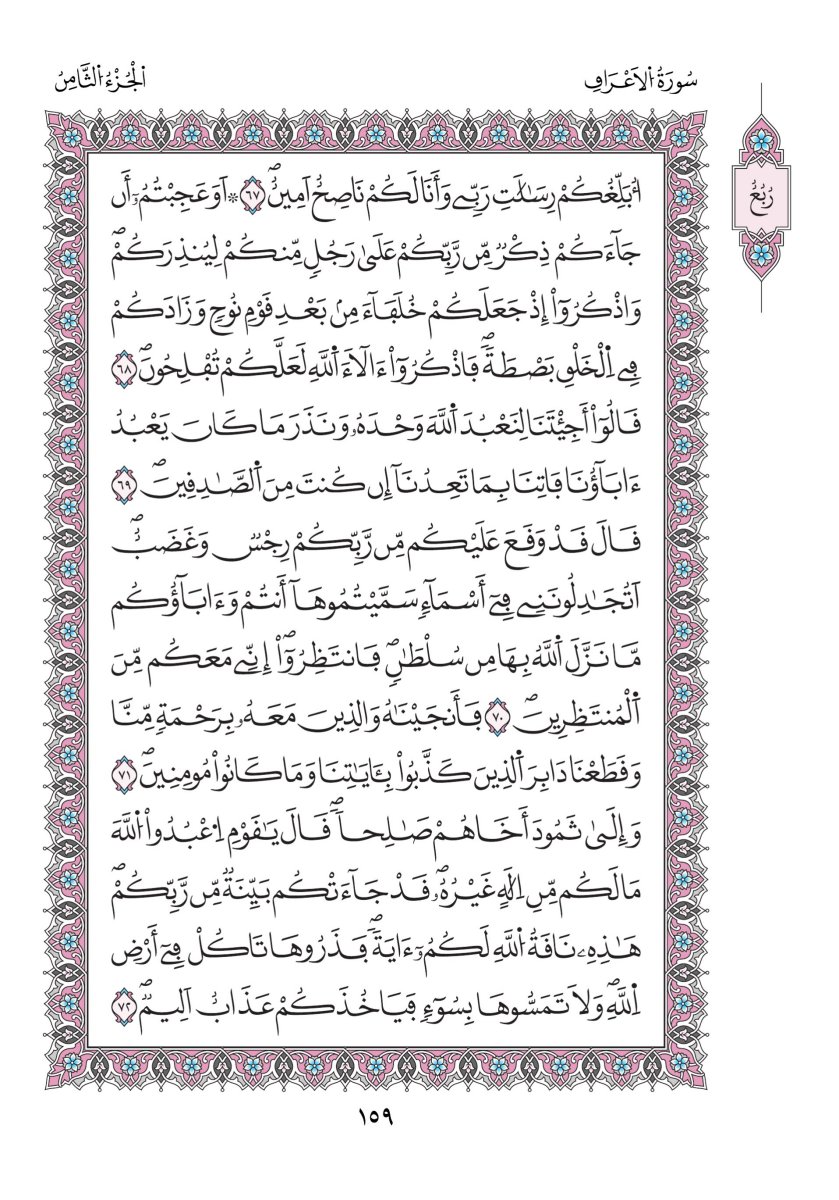 سُورَةُ اُ۬لَاعْرَافِ
اَ۬لْجُزْءُ اُ۬لثَّامِنُ
رُبُعٌ
أُبَلِّغُكُمْ رِسَٰلَٰتِ رَبِّے وَأَنَا لَكُمْ نَاصِحٌ اَمِينٌۖ ٦٧ ۞ اَوَعَجِبْتُمُۥٓ أَن
جَآءَكُمْ ذِكْرٞ مِّن رَّبِّكُمْ عَلَىٰ رَجُلٖ مِّنكُمْ لِيُنذِرَكُمْۖ
وَاذْكُرُوٓاْ إِذْ جَعَلَكُمْ خُلَفَآءَ مِنۢ بَعْدِ قَوْمِ نُوحٖ وَزَادَكُمْ
فِے اِ۬لْخَلْقِ بَصْطَةٗۖ فَاذْكُرُوٓاْ ءَالَآءَ اَ۬للَّهِ لَعَلَّكُمْ تُفْلِحُونَۖ ٦٨
قَالُوٓاْ أَجِئْتَنَا لِنَعْبُدَ اَ۬للَّهَ وَحْدَهُۥ وَنَذَرَ مَا كَانَ يَعْبُدُ
ءَابَآؤُنَا فَاتِنَا بِمَا تَعِدُنَآ إِن كُنتَ مِنَ اَ۬لصَّٰدِقِينَۖ ٦٩
قَالَ قَدْ وَقَعَ عَلَيْكُم مِّن رَّبِّكُمْ رِجْسٞ وَغَضَبٌۖ
اَتُجَٰدِلُونَنِے فِےٓ أَسْمَآءٖ سَمَّيْتُمُوهَآ أَنتُمْ وَءَابَآؤُكُم
مَّا نَزَّلَ اَ۬للَّهُ بِهَا مِن سُلْطَٰنٖۖ فَانتَظِرُوٓاْۖ إِنِّے مَعَكُم مِّنَ
اَ۬لْمُنتَظِرِينَۖ ٧٠ فَأَنجَيْنَٰهُ وَالذِينَ مَعَهُۥ بِرَحْمَةٖ مِّنَّا
وَقَطَعْنَا دَابِرَ اَ۬لذِينَ كَذَّبُواْ بِـَٔايَٰتِنَا وَمَا كَانُواْ مُومِنِينَۖ ٧١
وَإِلَىٰ ثَمُودَ أَخَاهُمْ صَٰلِحاٗۖ قَالَ يَٰقَوْمِ اِ۟عْبُدُواْ اُ۬للَّهَ
مَا لَكُم مِّنِ اِلَٰهٍ غَيْرُهُۥۖ قَدْ جَآءَتْكُم بَيِّنَةٞ مِّن رَّبِّكُمْۖ
هَٰذِهِۦ نَاقَةُ اُ۬للَّهِ لَكُمُۥٓ ءَايَةٗۖ فَذَرُوهَا تَاكُلْ فِےٓ أَرْضِ
اِ۬للَّهِۖ وَلَا تَمَسُّوهَا بِسُوٓءٖ فَيَاخُذَكُمْ عَذَابٌ اَلِيمٞۖ ٧٢
١٥٩